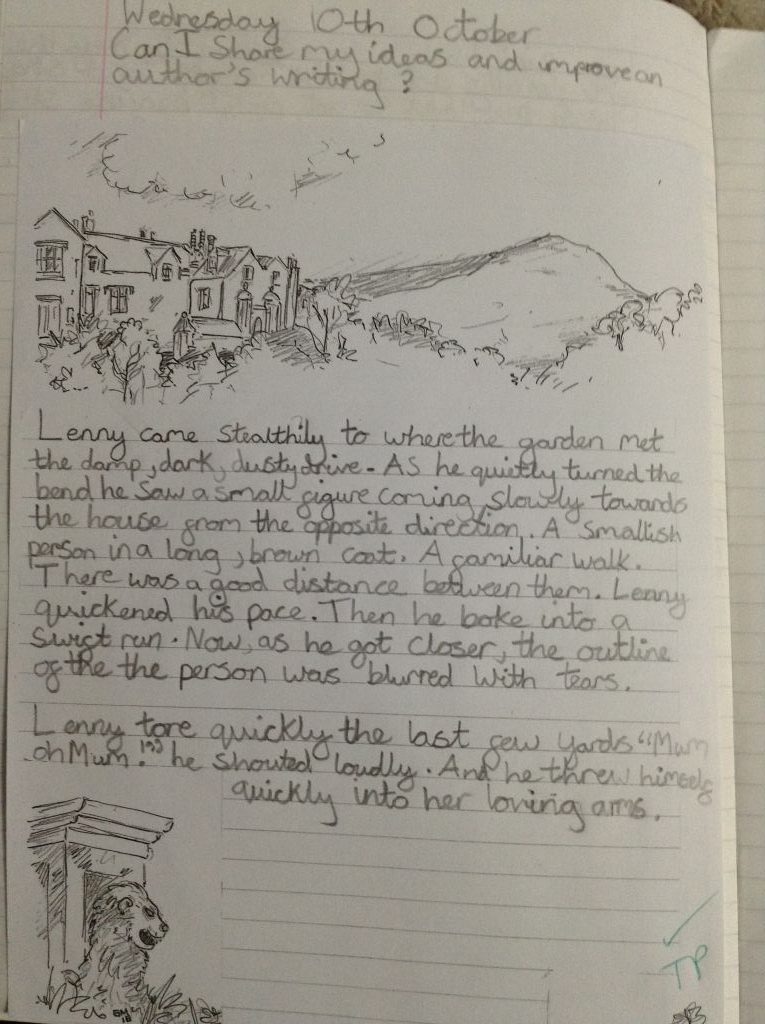 Wednesday 10th October
Can I Share my ideas and improve an
author's writing ?
Lenny came stealthily to where the garden met
the damp, dark, dusty drive. As he quietly turned the
bend he saw a small figure coming, slowly towards
the house from the opposite direction. A smallish
person in a long, brown coat. A familiar walk.
There was a good distance between them. Lenny
quickened his pace. Then he boke into a
swift run. Now, as he got closer, the outline
of the the person was blurred with tears.
Lenny tore quickly the last few yards "Mum
oh Mum!" he shouted loudly. And he threw himself
quickly into her loving arms.
TP